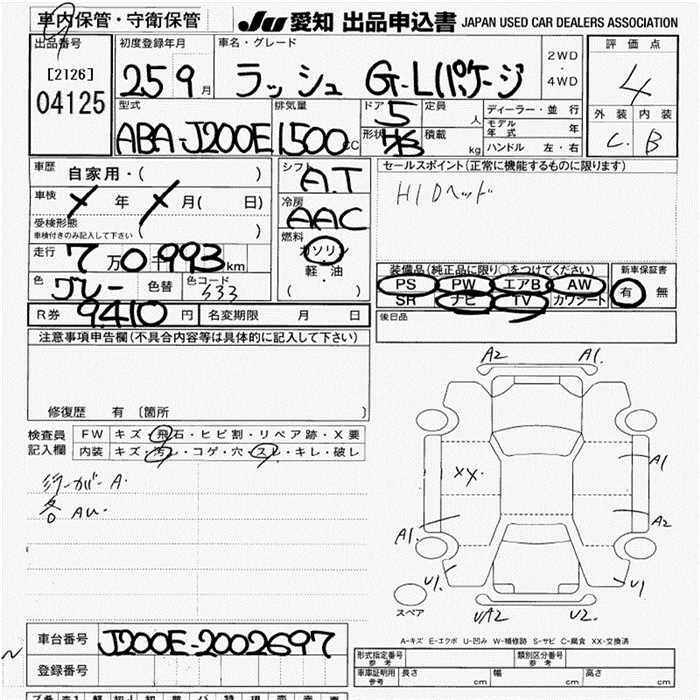 車内保管・守衛保管
JU 愛知 出品申込書 JAPAN USED CAR DEALERS ASSOCIATION
出品番号
[2126]
04125
初度登録年月
25 9月
車名・グレード
ラッシュ G-Lパケージ
2WD
・
4WD
評価点
4
型式
ABA-J200E
排気量
1500CC
ドア
5
定員
人
形状
積載
kg
ディーラー・並行
モデル年式 年
ハンドル 左・右
外装 内装
C. B
車歴
自家用・( )
車検
年 月( 日)
受検形態
車検付きのみ記入して下さい ( )
走行
7万0千993km
色
グレー
色替
色コード
S33
シフト
A.T
冷房
AAC
燃料
ガソリン
軽・油
( ・ )
セールスポイント(正常に機能するものに限ります)
HIDヘッド
装備品(純正品に限り○をつけてください)
PS PW エアB AW
SR ナビ TV カワシート
新車保証書
有 無
後日品
R券 9.410円
名変期限 月 日
注意事項申告欄(不具合内容等は具体的に記入して下さい)
修復歴 有 〔箇所 〕
検査員
記入欄
FW キズ・飛石・ヒビ割・リペア跡・X要
内装 キズ・汚レ・コゲ・穴・スレ・キレ・破レ
A.
各 AU.
A2 A1.
XX.
A1
A1.
A2
U1. U1
UA2 U2.
スペア
A-キズ E-エクボ U-凹み W-補修跡 S-サビ C-腐食 XX-交換済
車台番号
J200E-2002697
登録番号
形式指定番号
参考
類別区分番号
参考
車庫証明用
参考
長さ cm 幅 cm 高さ cm